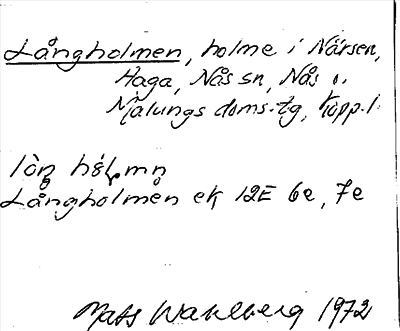 Långholmen, holme i Närsen,
Haga, Nås sn, Nås o.
Malungs doms.tg, Kopp.l.
lòŋ hòl̥mn̥
Långholmen ek 12E 6e, 7e
Mats Wahlberg 1972